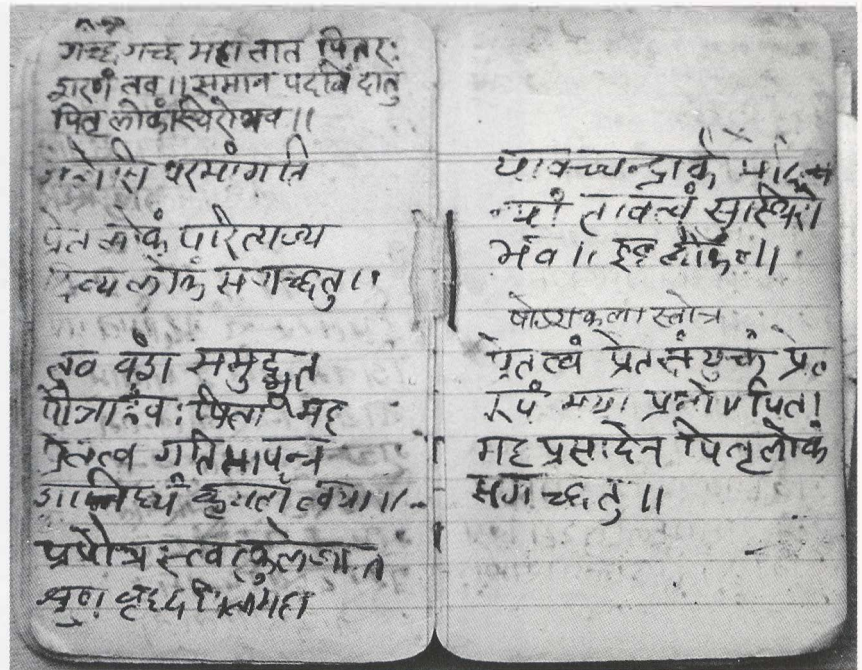 गच्छ गच्छ महातात पितरः
शरणं तव ॥ समान पदविं दातु
पितृ लोकंस्थिरोभव ॥
गतोसि परमांगति
प्रेत लोकं परित्यज्य
दिव्य लोकं सगच्छतु ॥
तव वंश समुद्भुत
पौत्राहंव : पिता मह
प्रेतत्व गतिमापन्न
प्रपौत्र स्त्वत्कुलेजात
श्रुणु
यावच्चन्द्रार्क
तावत्वं सुस्थिरो
भव ॥ इह लोकं ॥
षोडशकला स्तोत्र
प्रेतत्वं प्रेतसंयुक्तं प्रेत
रूपं मया प्रभो ॥ पिता
मह प्रसादेन पितृलोकं
सग च्छतु ॥